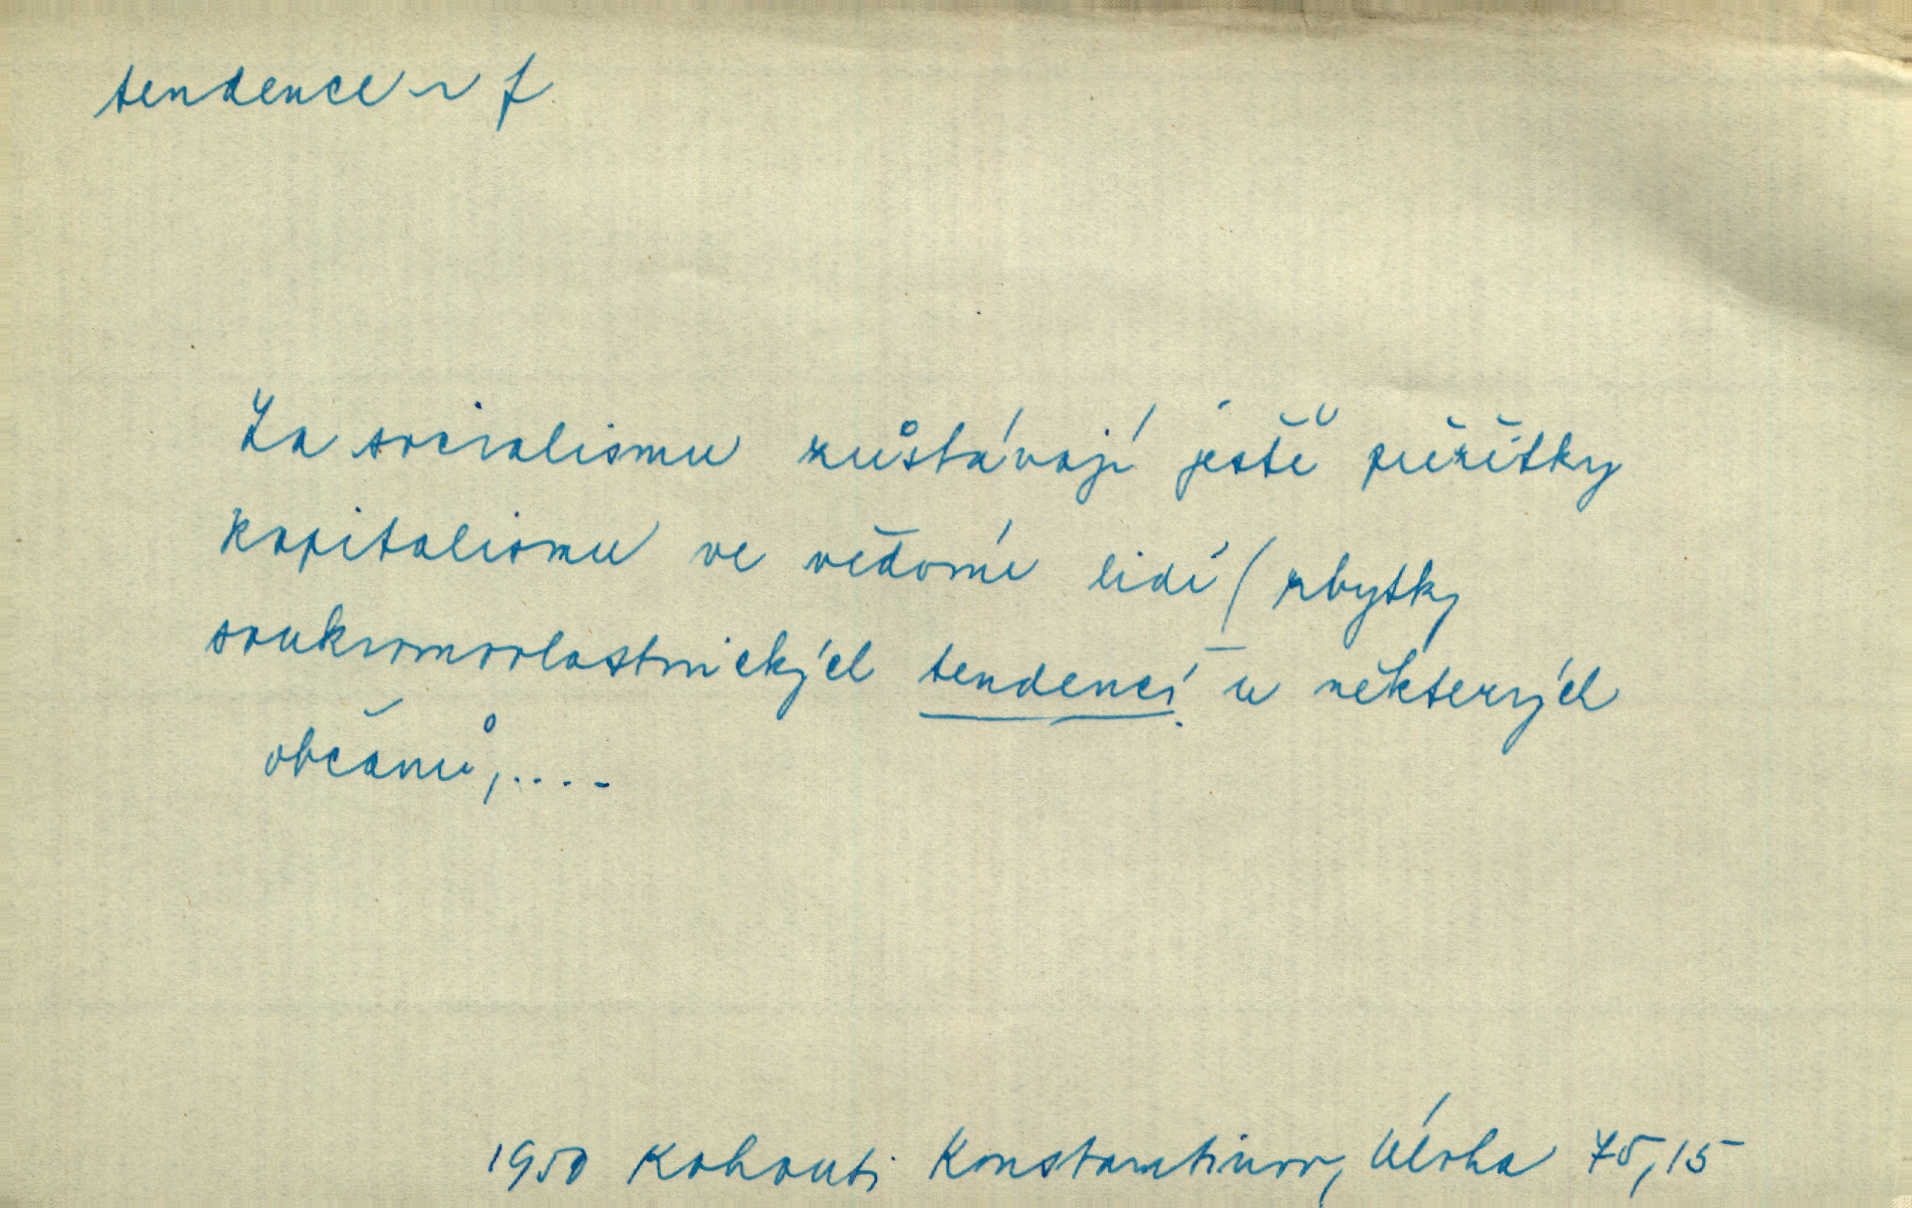 tendence ~ f
Za socialismu zůstávají ještě přežitky
kapitalismu ve vědomí lidí (zbytky
soukromovlastnických tendencí u některých
občanů,....
1950 Kohout; Konstantinov, Úloha 75,15